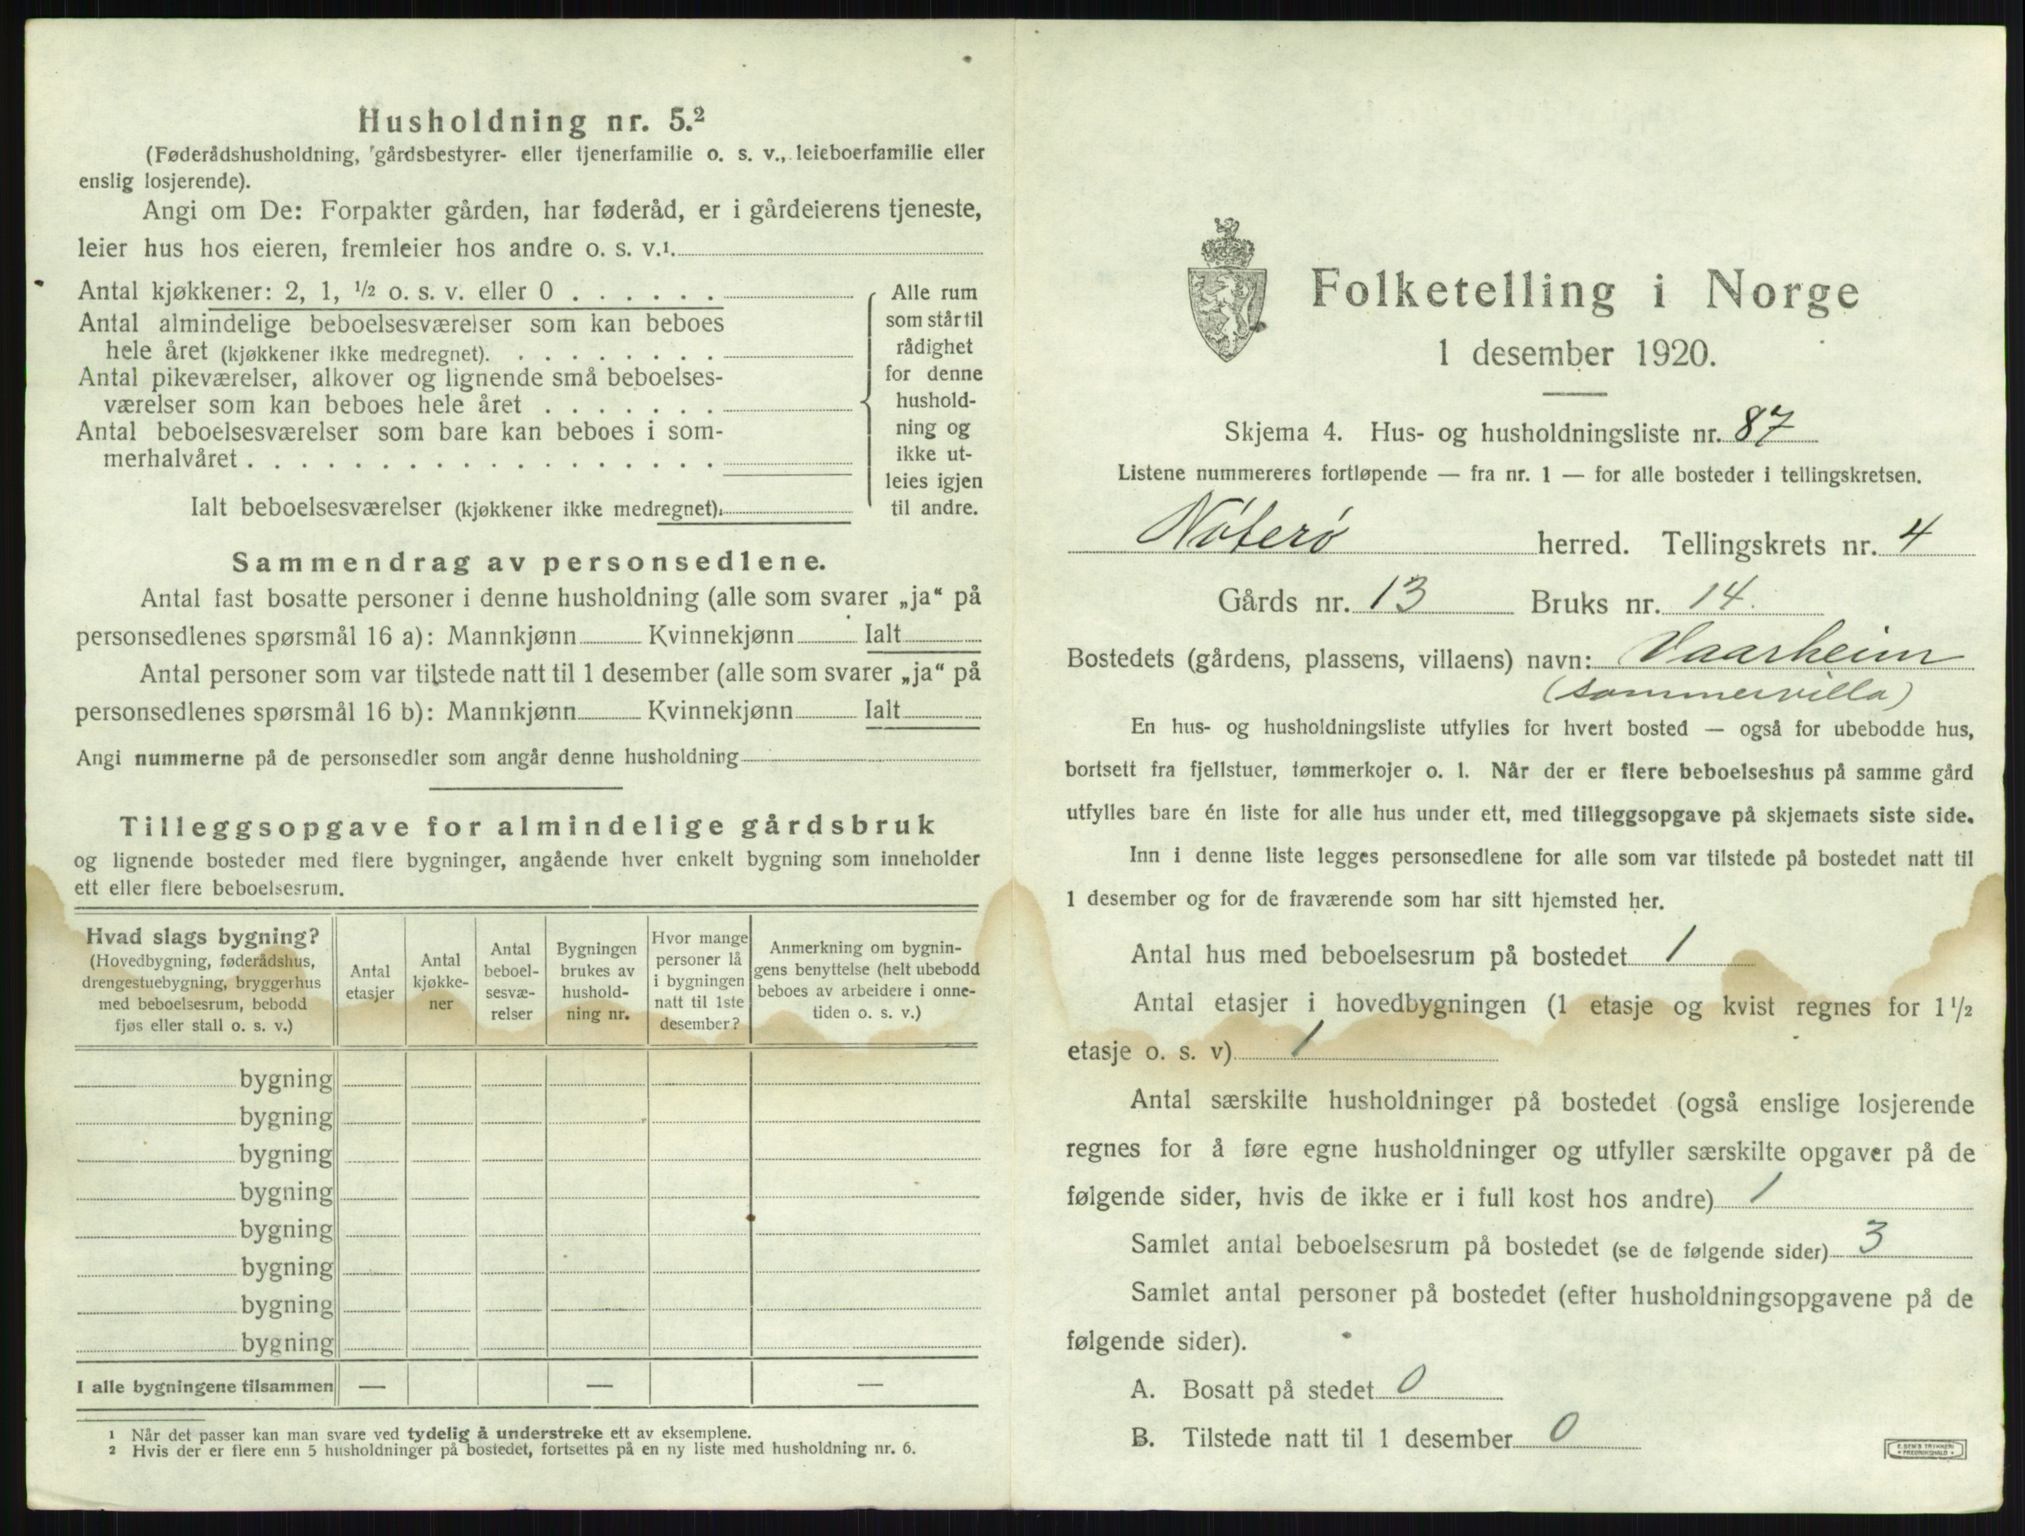 Husholdning nr. 5.²
(Føderådshusholdning, gårdsbestyrer- eller tjenerfamilie o. s. v., leieboerfamilie eller
enslig losjerende).
Angi om De: Forpakter gården, har føderåd, er i gårdeierens tjeneste,
leier hus hos eieren, fremleier hos andre o. s. v.¹
Antal kjøkkener: 2, 1, ½ o. s. v. eller 0 . . . . . .
Antal almindelige beboelsesværelser som kan beboes
hele året (kjøkkener ikke medregnet). . . . . . . . .
Antal pikeværelser, alkover og lignende små beboelses-
værelser som kan beboes hele året . . . . . . .
Antal beboelsesværelser som bare kan beboes i som-
merhalvåret . . . . . . . . . . . . . . . . . .
Ialt beboelsesværelser (kjøkkener ikke medregnet).
Alle rum
som står til
rådighet
for denne
hushold-
ning og
ikke ut-
leies igjen
til andre.
Sammendrag av personsedlene.
Antal fast bosatte personer i denne husholdning (alle som svarer „ja“ på
personsedlenes spørsmål 16 a): Mannkjønn Kvinnekjønn Ialt
Antal personer som var tilstede natt til 1 desember (alle som svarer „ja“ på
personsedlenes spørsmål 16 b): Mannkjønn Kvinnekjønn Ialt
Angi nummerne på de personsedler som angår denne husholdning
Tilleggsopgave for almindelige gårdsbruk
og lignende bosteder med flere bygninger, angående hver enkelt bygning som inneholder
ett eller flere beboelsesrum.
Hvad slags bygning?
(Hovedbygning, føderådshus,
drengestuebygning, bryggerhus
med beboelsesrum, bebodd
fjøs eller stall o. s. v.)
Antal
etasjer
Antal
kjøkke-
ner
Antal
beboel-
sesvæ-
relser
Bygningen
brukes av
hushold-
ning nr.
Hvor mange
personer lå
i bygningen
natt til 1ste
desember?
Anmerkning om bygnin-
gens benyttelse (helt ubebodd
beboes av arbeidere i onne-
tiden o. s. v.)
bygning
bygning
bygning
bygning
bygning
bygning
bygning
bygning
I alle bygningene tilsammen — — —
¹ Når det passer kan man svare ved tydelig å understreke ett av eksemplene.
² Hvis der er flere enn 5 husholdninger på bostedet, fortsettes på en ny liste med husholdning nr. 6.
Folketelling i Norge
1 desember 1920.
Skjema 4. Hus- og husholdningsliste nr. 87
Listene nummereres fortløpende — fra nr. 1 — for alle bosteder i tellingskretsen.
Nøterø herred. Tellingskrets nr. 4
Gårds nr. 13 Bruks nr. 14.
Bostedets (gårdens, plassens, villaens) navn: Vaarheim
(sommervilla)
En hus- og husholdningsliste utfylles for hvert bosted — også for ubebodde hus,
bortsett fra fjellstuer, tømmerkojer o. l. Når der er flere beboelseshus på samme gård
utfylles bare én liste for alle hus under ett, med tilleggsopgave på skjemaets siste side.
Inn i denne liste legges personsedlene for alle som var tilstede på bostedet natt til
1 desember og for de fraværende som har sitt hjemsted her.
Antal hus med beboelsesrum på bostedet 1
Antal etasjer i hovedbygningen (1 etasje og kvist regnes for 1½
etasje o. s. v) 1
Antal særskilte husholdninger på bostedet (også enslige losjerende
regnes for å føre egne husholdninger og utfyller særskilte opgaver på de
følgende sider, hvis de ikke er i full kost hos andre) 1
Samlet antal beboelsesrum på bostedet (se de følgende sider) 3
Samlet antal personer på bostedet (efter husholdningsopgavene på de
følgende sider).
A. Bosatt på stedet 0
B. Tilstede natt til 1 desember 0